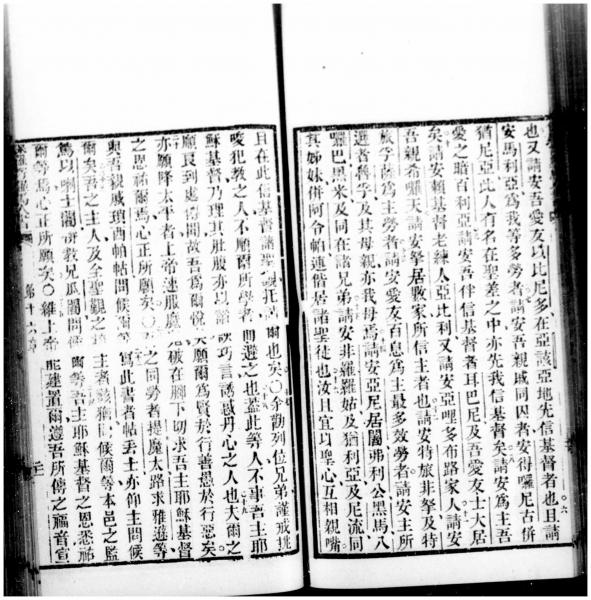 也又請安吾愛友以比尼多在亞該亞地先信基督者也且請
安馬利亞為我等多勞者請安吾親戚同囚者安得囉尼古併
猶尼亞此人有名在聖差之中亦先我信基督矣請安為主吾
愛之暗百利亞請安吾伴信基督者耳巴尼及吾愛友士大居
矣請安賴基督老練人亞比利又請安亞哩多布路家人請安
吾親希囉天請安拏居散家所信主者也請安特旅非拏及特
旅孚薩為主勞者請安愛友百息為主最多效勞者請安主所
選者魯孚及其母親亦我母焉請安亞尼居闔弗利公黑馬八
囉巴黑米及同在諸兄弟請安非羅羅姑及猶利亞及尼流同
其姊妹併阿令帕連偕居諸聖徒也汝且宜以聖心互相親嘴
且在此信基督諸聖爾也矣〇余勸列位兄弟謹戒挑
唆犯教之人不願爾所學者即避之也蓋此等人不事吾主耶
穌基督乃理其肚腹亦以諂談巧言誘惑丹心之人也夫爾之
順良到處得聞故吾為爾悅矣願爾為賢於行善愚於行惡矣
亦願降太平者上帝速服魔鬼破在腳下切求吾主耶穌基督
之恩祐爾焉心正所願矣〇之同勞者提摩太路求雅遜等
與吾親戚瑣西帕帖問候爾等寫此書者帖丟士亦仰主問候
爾矣吾之主人及全聖主者該猶問候爾等本邑之監
篤以喇士闔教兄瓜闔問候爾等吾主耶穌基督之恩悉祐
爾等焉心正所願矣〇維上帝能建置爾遵吾所傳之福音宣
第十六章